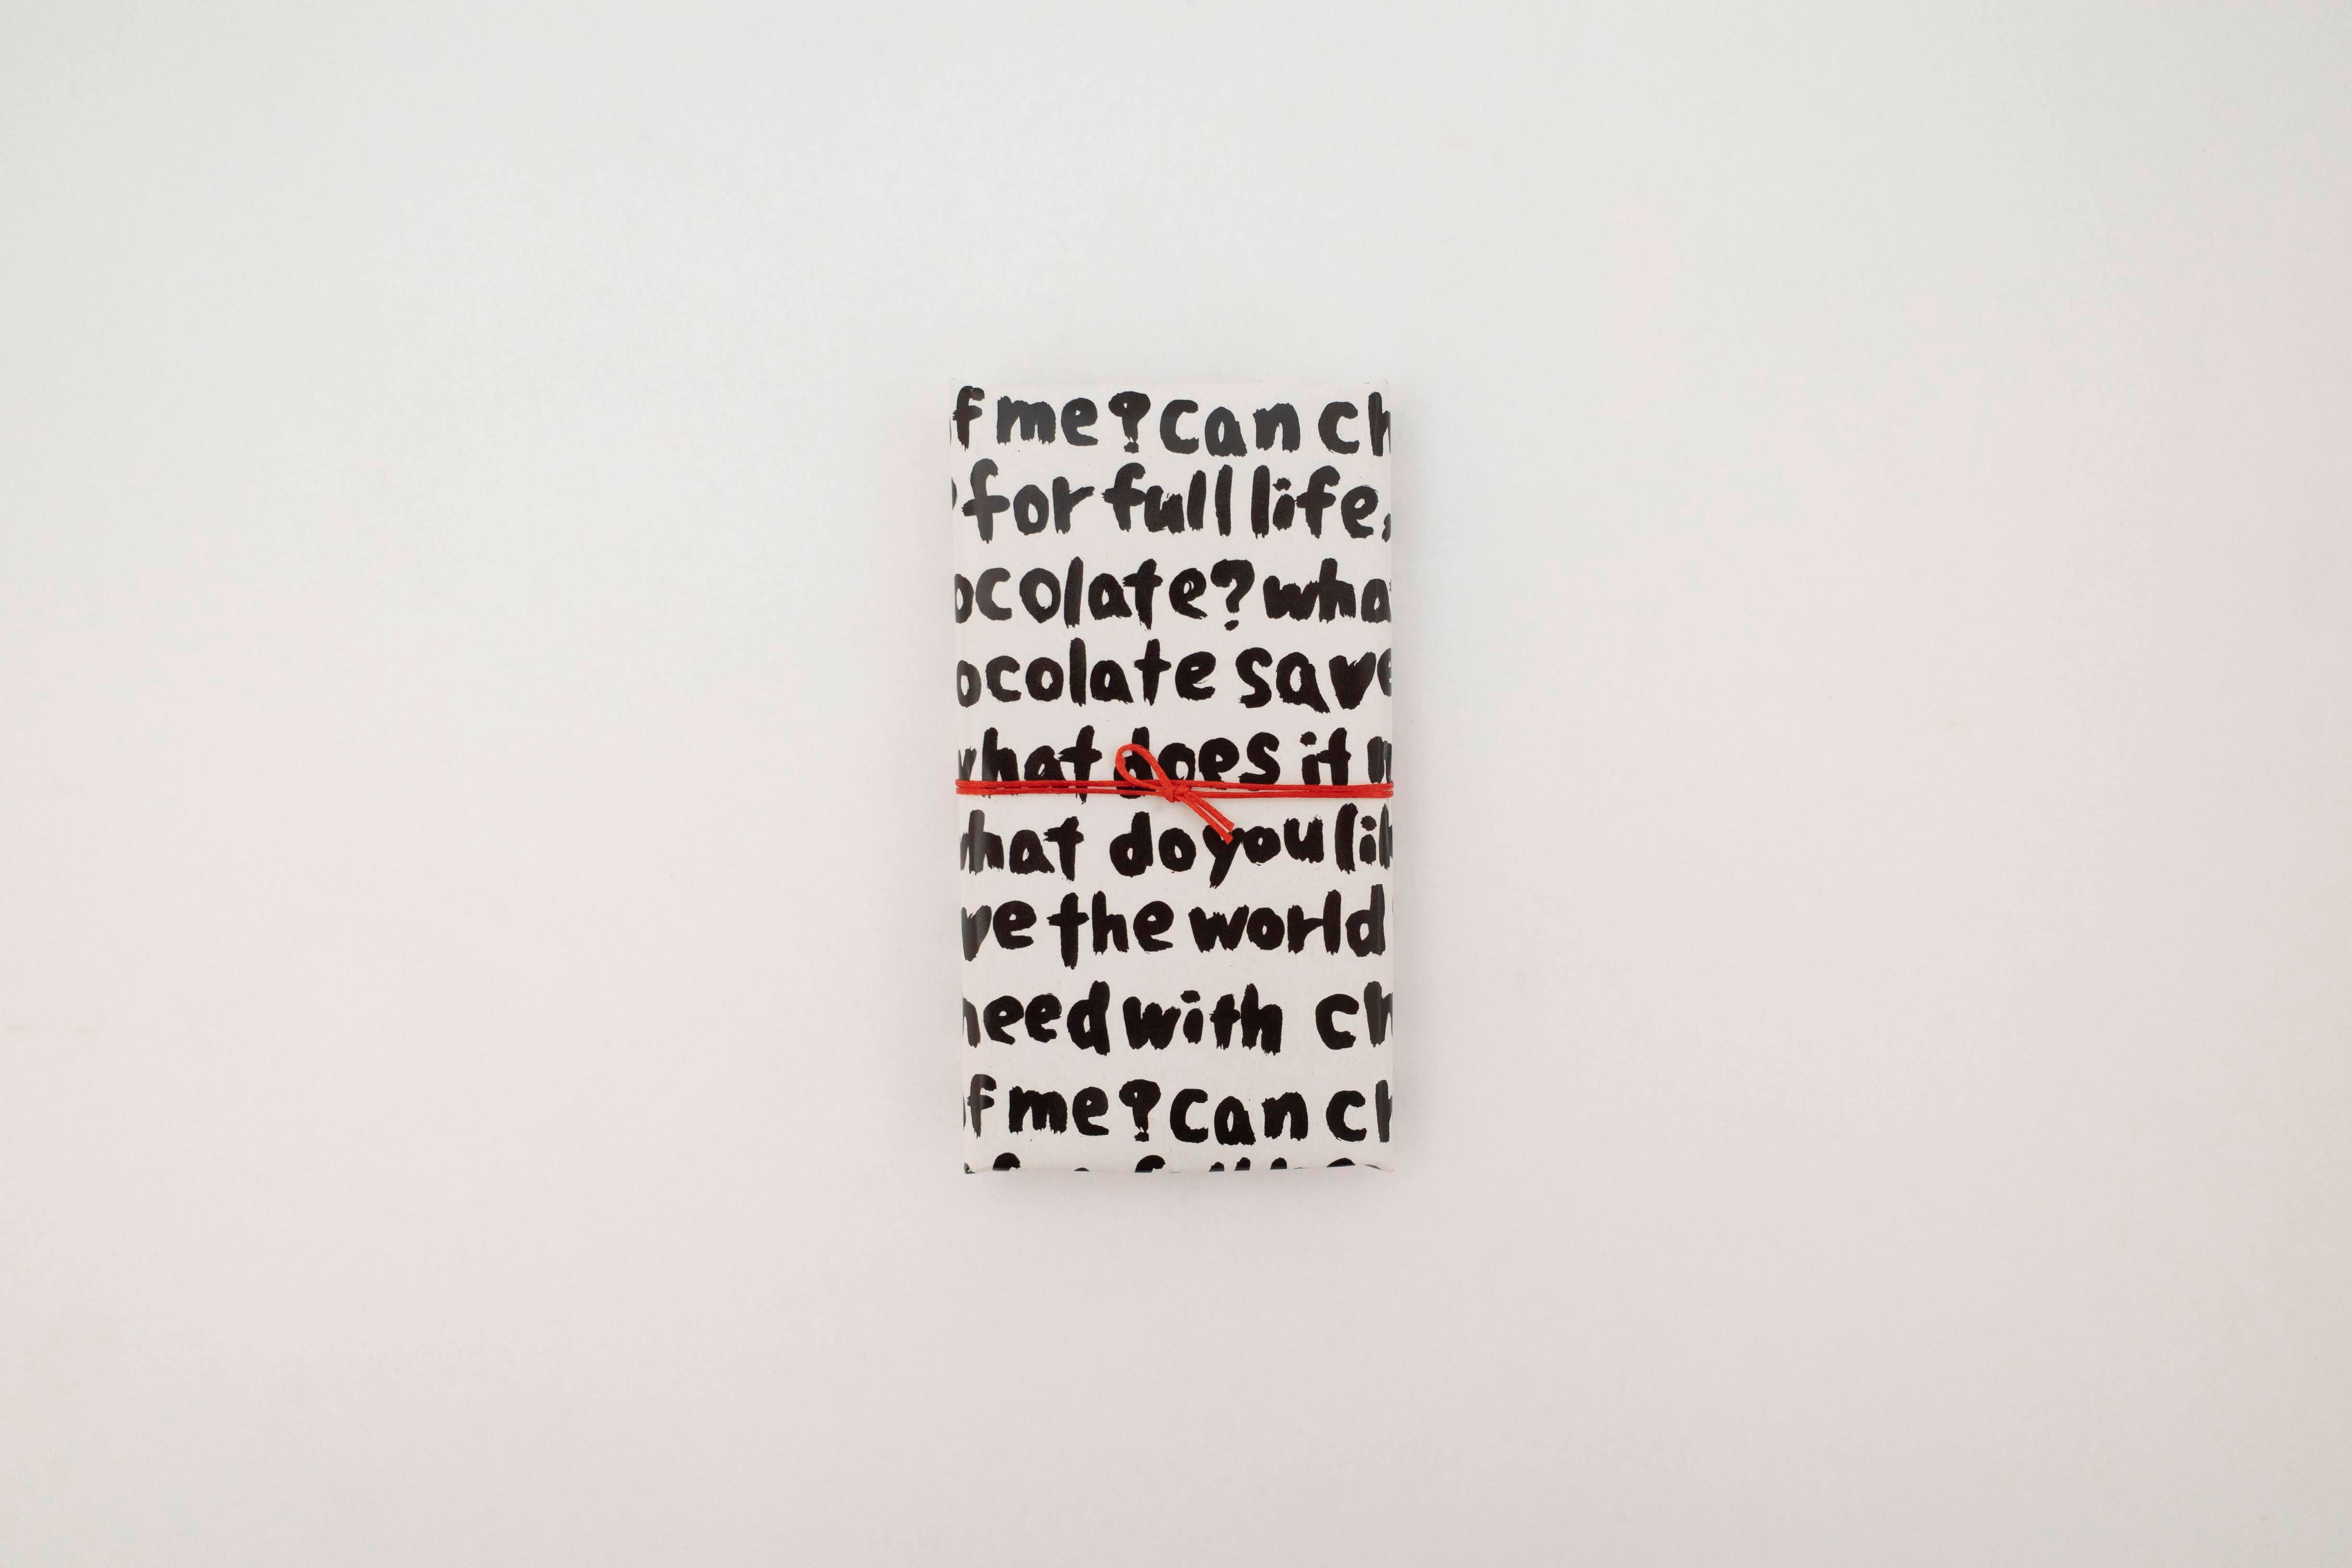 f me? can ch
for full life,
ocolate? wha
ocolate save
what does it
what do you lik
ve the world
need with ch
of me? can ch